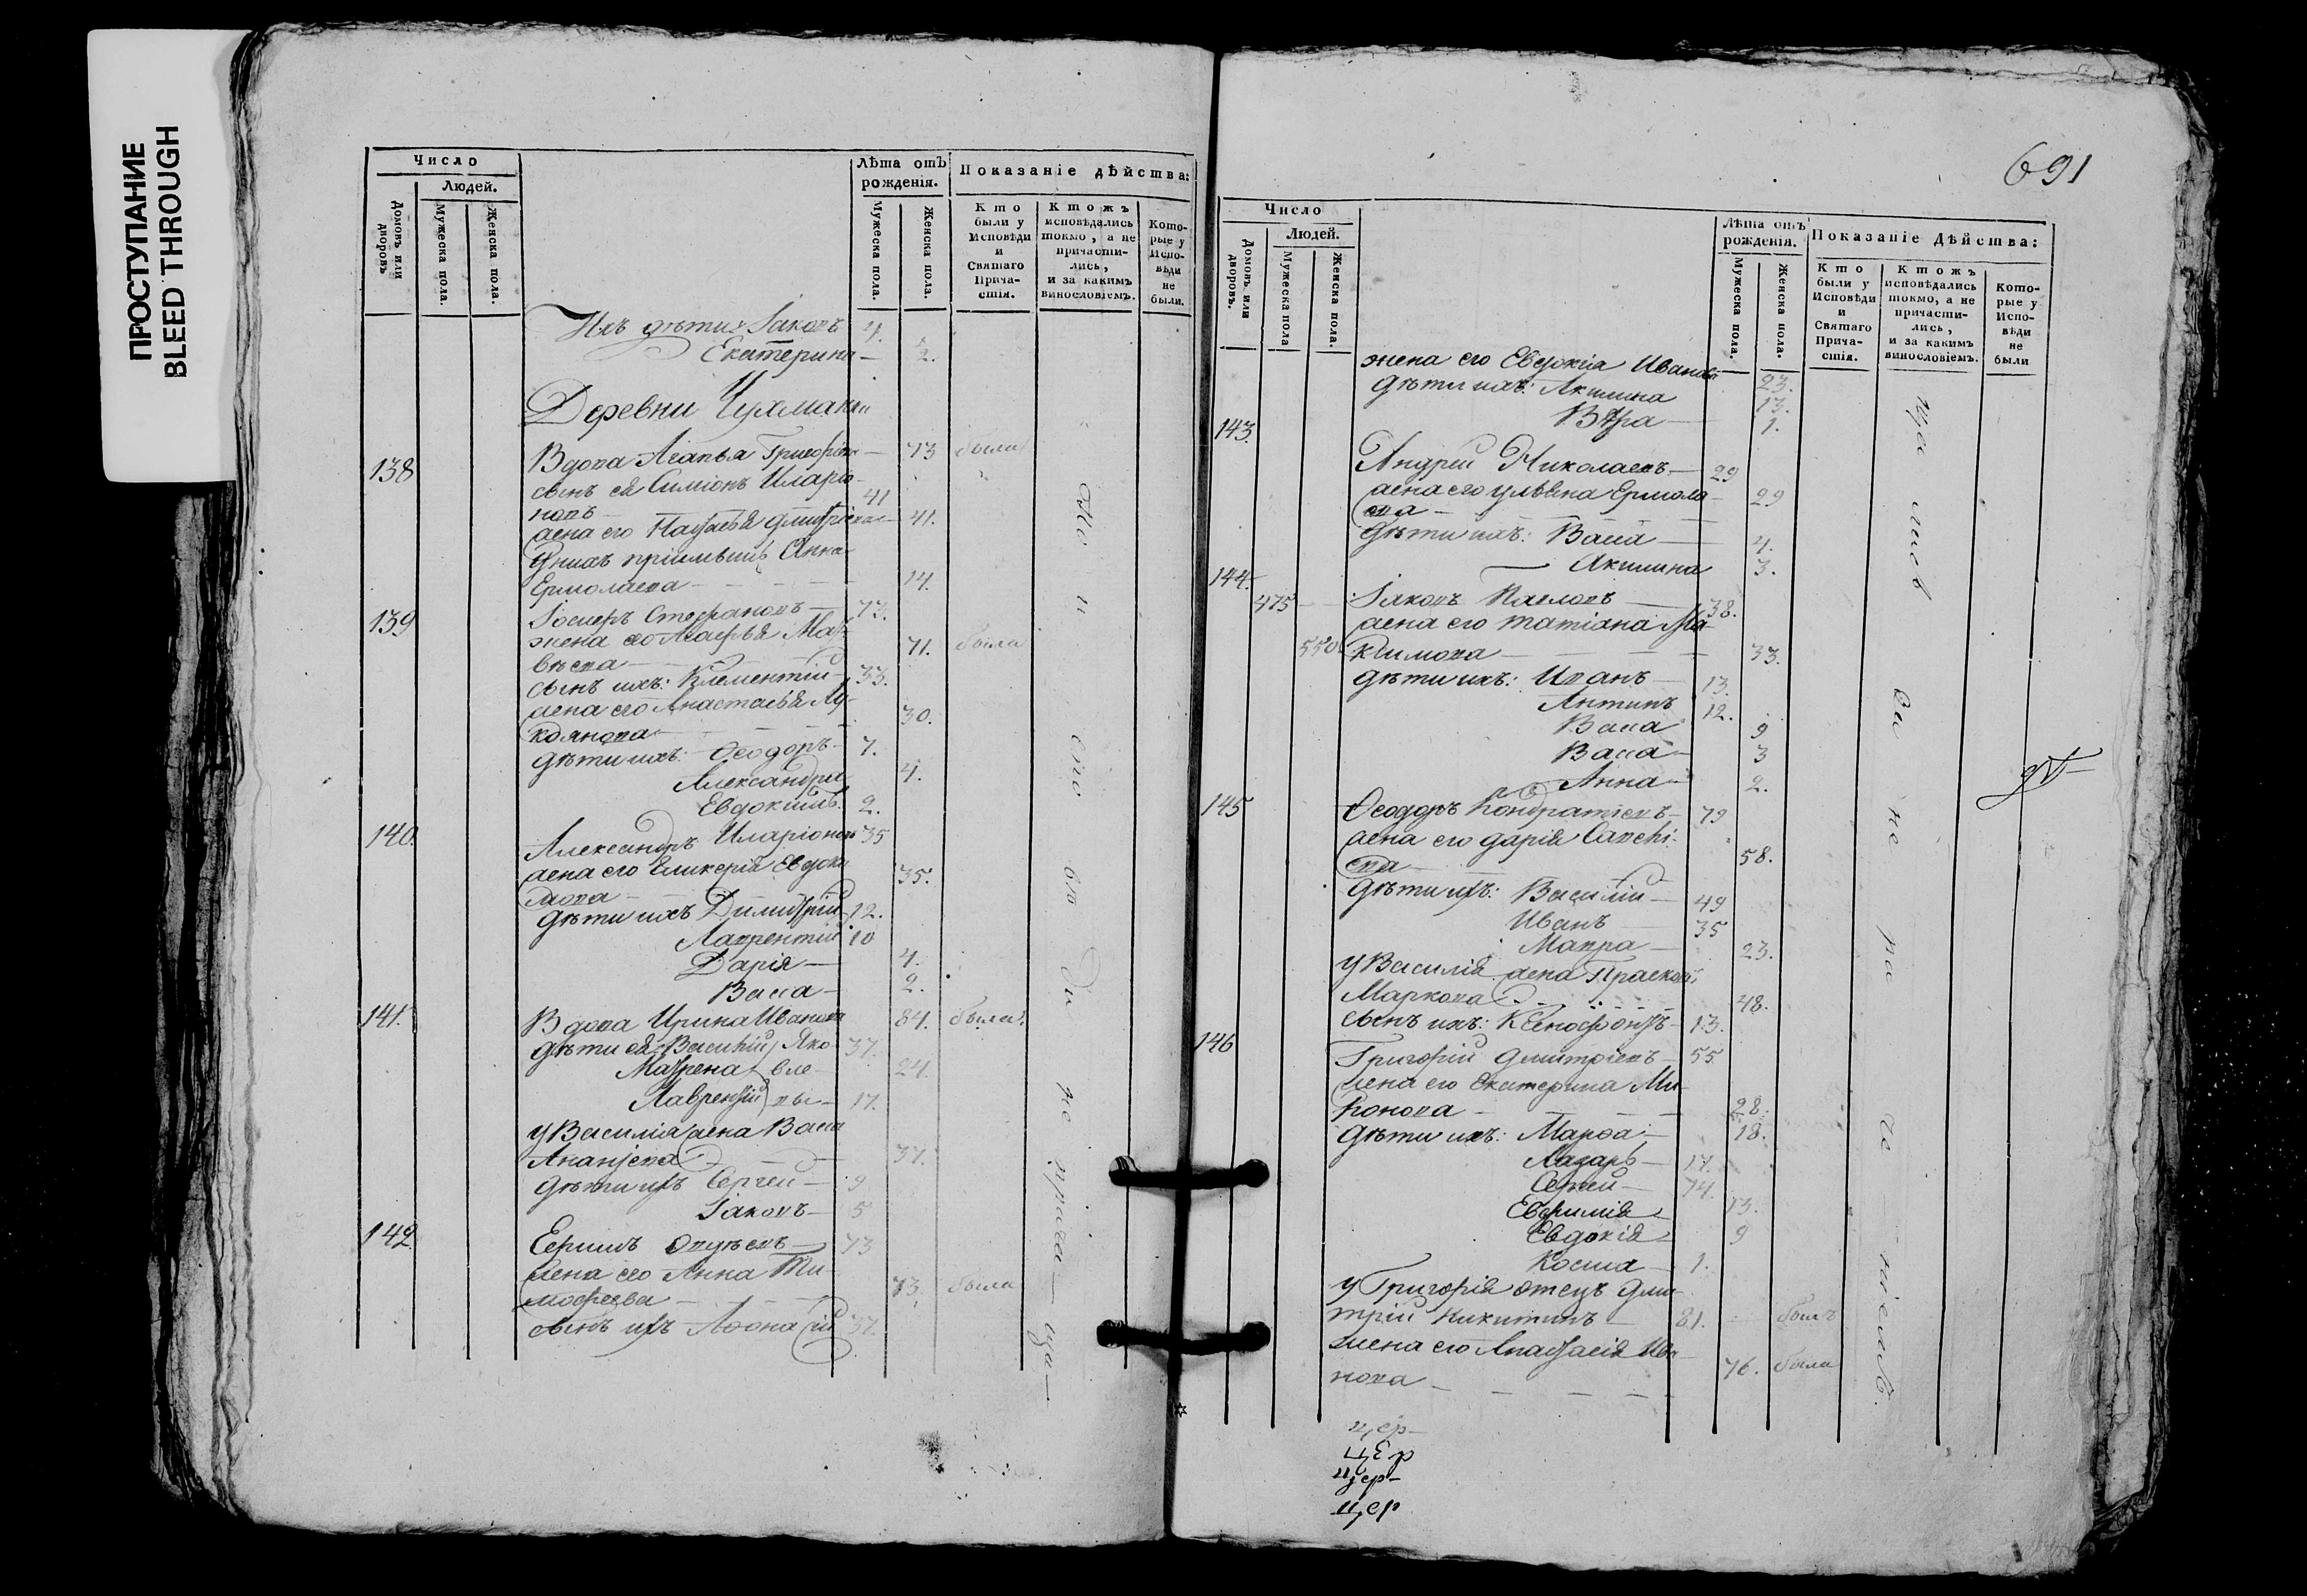 ПРОСТУПАНИЕ
BLEED THROUGH
Число
Людей.
Домовъ или дворовъ
Мужеска пола.
Женска пола.
Лѣта отъ рожденія.
Мужеска пола.
Женска пола.
Показаніе дѣйства:
Кто были у Исповѣди и Святаго Прича-стія.
Ктожъ исповѣдались токмо, а не причасти-лись, и за какимъ винословіемъ.
Кото-рые у Испо-вѣди не были.
Ихъ дѣти: Іаковъ 4.
Екатерина — 2.
Деревни
138 Вдова Агапья 73 была
сынъ ея Симіонъ Иларіо-
новъ — 41
жена его Наталья Дмитріева — 41.
У нихъ пріимышъ Анна
Ермолаева — 14.
139 Іосифъ Стефановъ — 73.
жена его Агафья Мат-
вѣева — 71. была
сынъ ихъ: Климентій — 33.
жена его Анастасія Лу-
кьянова — 30.
дѣти ихъ: Ѳеодоръ — 7.
Александра 4.
Евдокимъ. 2.
140. Александръ Иларіоновъ 35
жена его Гликерія Евдоки
мова — 35.
дѣти ихъ Димитрій — 12.
Лаврентій 10
Дарія — 4.
Васса — 2.
141. Вдова Ирина Иванова 84. была.
дѣти ея: Василій Яко- 37.
Матрена вле- 24.
Лаврентій вы — 17.
у Василія жена Васса
Ананіева — 37.
дѣти ихъ Сергей — 9
Іаковъ — 5
142. 73
жена его Анна Ти-
мофеева — 73. была
сынъ ихъ Аѳонасій 37.
но и сію от ди не прича — ща —
691
Число
Людей.
Домовъ или дворовъ.
Мужеска пола
Женска пола.
Лѣта отъ рожденія.
Мужеска пола.
Женска пола.
Показаніе Дѣйства:
Кто были у Исповѣди и Святаго Прича-стія.
Ктожъ исповѣдались токмо, а не причасти-лись, и за какимъ винословіемъ.
Кото-рые у Испо-вѣди не были
жена его Евдокія Иванова 23.
дѣти ихъ: Акилина 13.
Вѣра — 1.
143. Андрей Николаевъ — 29
жена его Ульяна Ермола-
ева — 29
дѣти ихъ: Васса — 4.
Акилина 3.
144. 475 Іаковъ Павловъ — 38.
жена его Татіана Ма-
550 кимова — 33.
дѣти ихъ: Иванъ — 13.
Антипъ 12.
Васса 9
Васса — 3
Анна — 2.
145 Ѳеодоръ Кондратіевъ — 79
жена его Дарія Савелі-
ева — 58.
дѣти ихъ: Василій — 49
Иванъ 35
Мавра — 23.
у Василія жена Прасковья
Маркова 48.
сынъ ихъ: Ксенофонтъ — 13.
146 Григорій Дмитріевъ — 55
жена его Екатерина Ми-
ронова — 28.
дѣти ихъ: Марѳа — 18.
Лазарь — 17.
Сергей — 14.
Евфимія 13.
Евдокія 9
Косма — 1.
у Григорія отецъ Дми-
трій Никитинъ — 81. былъ
жена его Анастасія Ива-
нова — 76. была
цер-
цер
цер-
цер